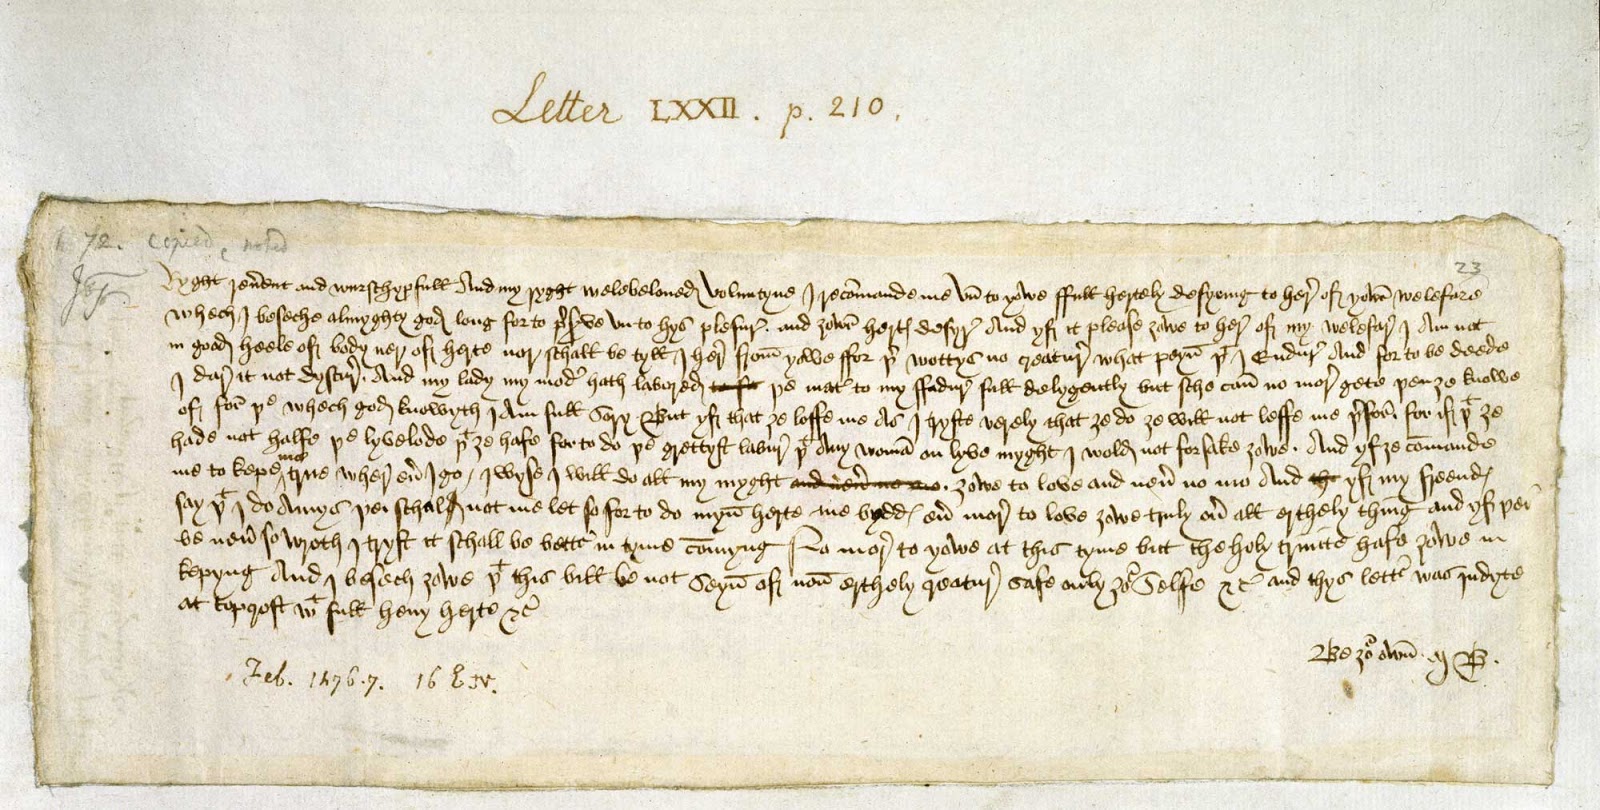 Letter LXXII. p. 210.
72. copied noted
23
Ryght reũent and wurschypfull And my ryght welebeloued Voluntyne I recõmande me vn to yowe ffull hertely desyring to her͛ of yowr͛ welefare
whech I beseche almyghty god long for to p͛s͛ve vn to hys plesur͛. and ȝowr͛ hert͛ desyr͛ And yf it please ȝowe to her͛ of my welefar͛ I Am not
in good heele of body ner of herte nor schall be tyll I her͛ from yowe ffor þ͛ wottys no creatur͛ what peyn þͭ I Endur͛ And for to be deede
I dar͛ it not dyscur͛. And my lady my mod͛ hath labored þe mat͛ to my ffadur͛ full delygently but sche can no mor͛ gete þen ȝe knowe
of for þͤ whech god knowyth I Am full sory But yf that ȝe loffe me As I tryste verely that ȝe do ȝe will not leffe me þ͛for͛. for if þͭ ȝe
hade not halfe þe lyvelode þͭ ȝe hafe for to do þͤ grettyst labur͛ þͭ Any womã on lyve myght I wold not forsake ȝowe. And yf ȝe cõmande
me to kepe me true wher eũ I go I wyse I will do all my myght and neũ no mo. ȝowe to love and neũ no mo And yf my freend͛
say þͭ I do Amys þei schal not me let so for to do myn͛ herte me bydd͛ eũ mor͛ to love ȝowe truly oũ all erthely thing and yf þei
be neũ so wroth I tryst it schall be bett͛ in tyme cõmyng No mor͛ to yowe at this tyme but the holy trinite hafe ȝowe in
kepyng And I besech ȝowe þͭ this bill be not seyn͛ of non͛ erthely creatur͛ safe only ȝoʳ selfe &c͛ and thys lett͛ was indyte
at topcroft wͭ full heuy herte &c͛
Be ȝoʳ own͛ M B.
Feb. 1476.7. 16 E.IV.